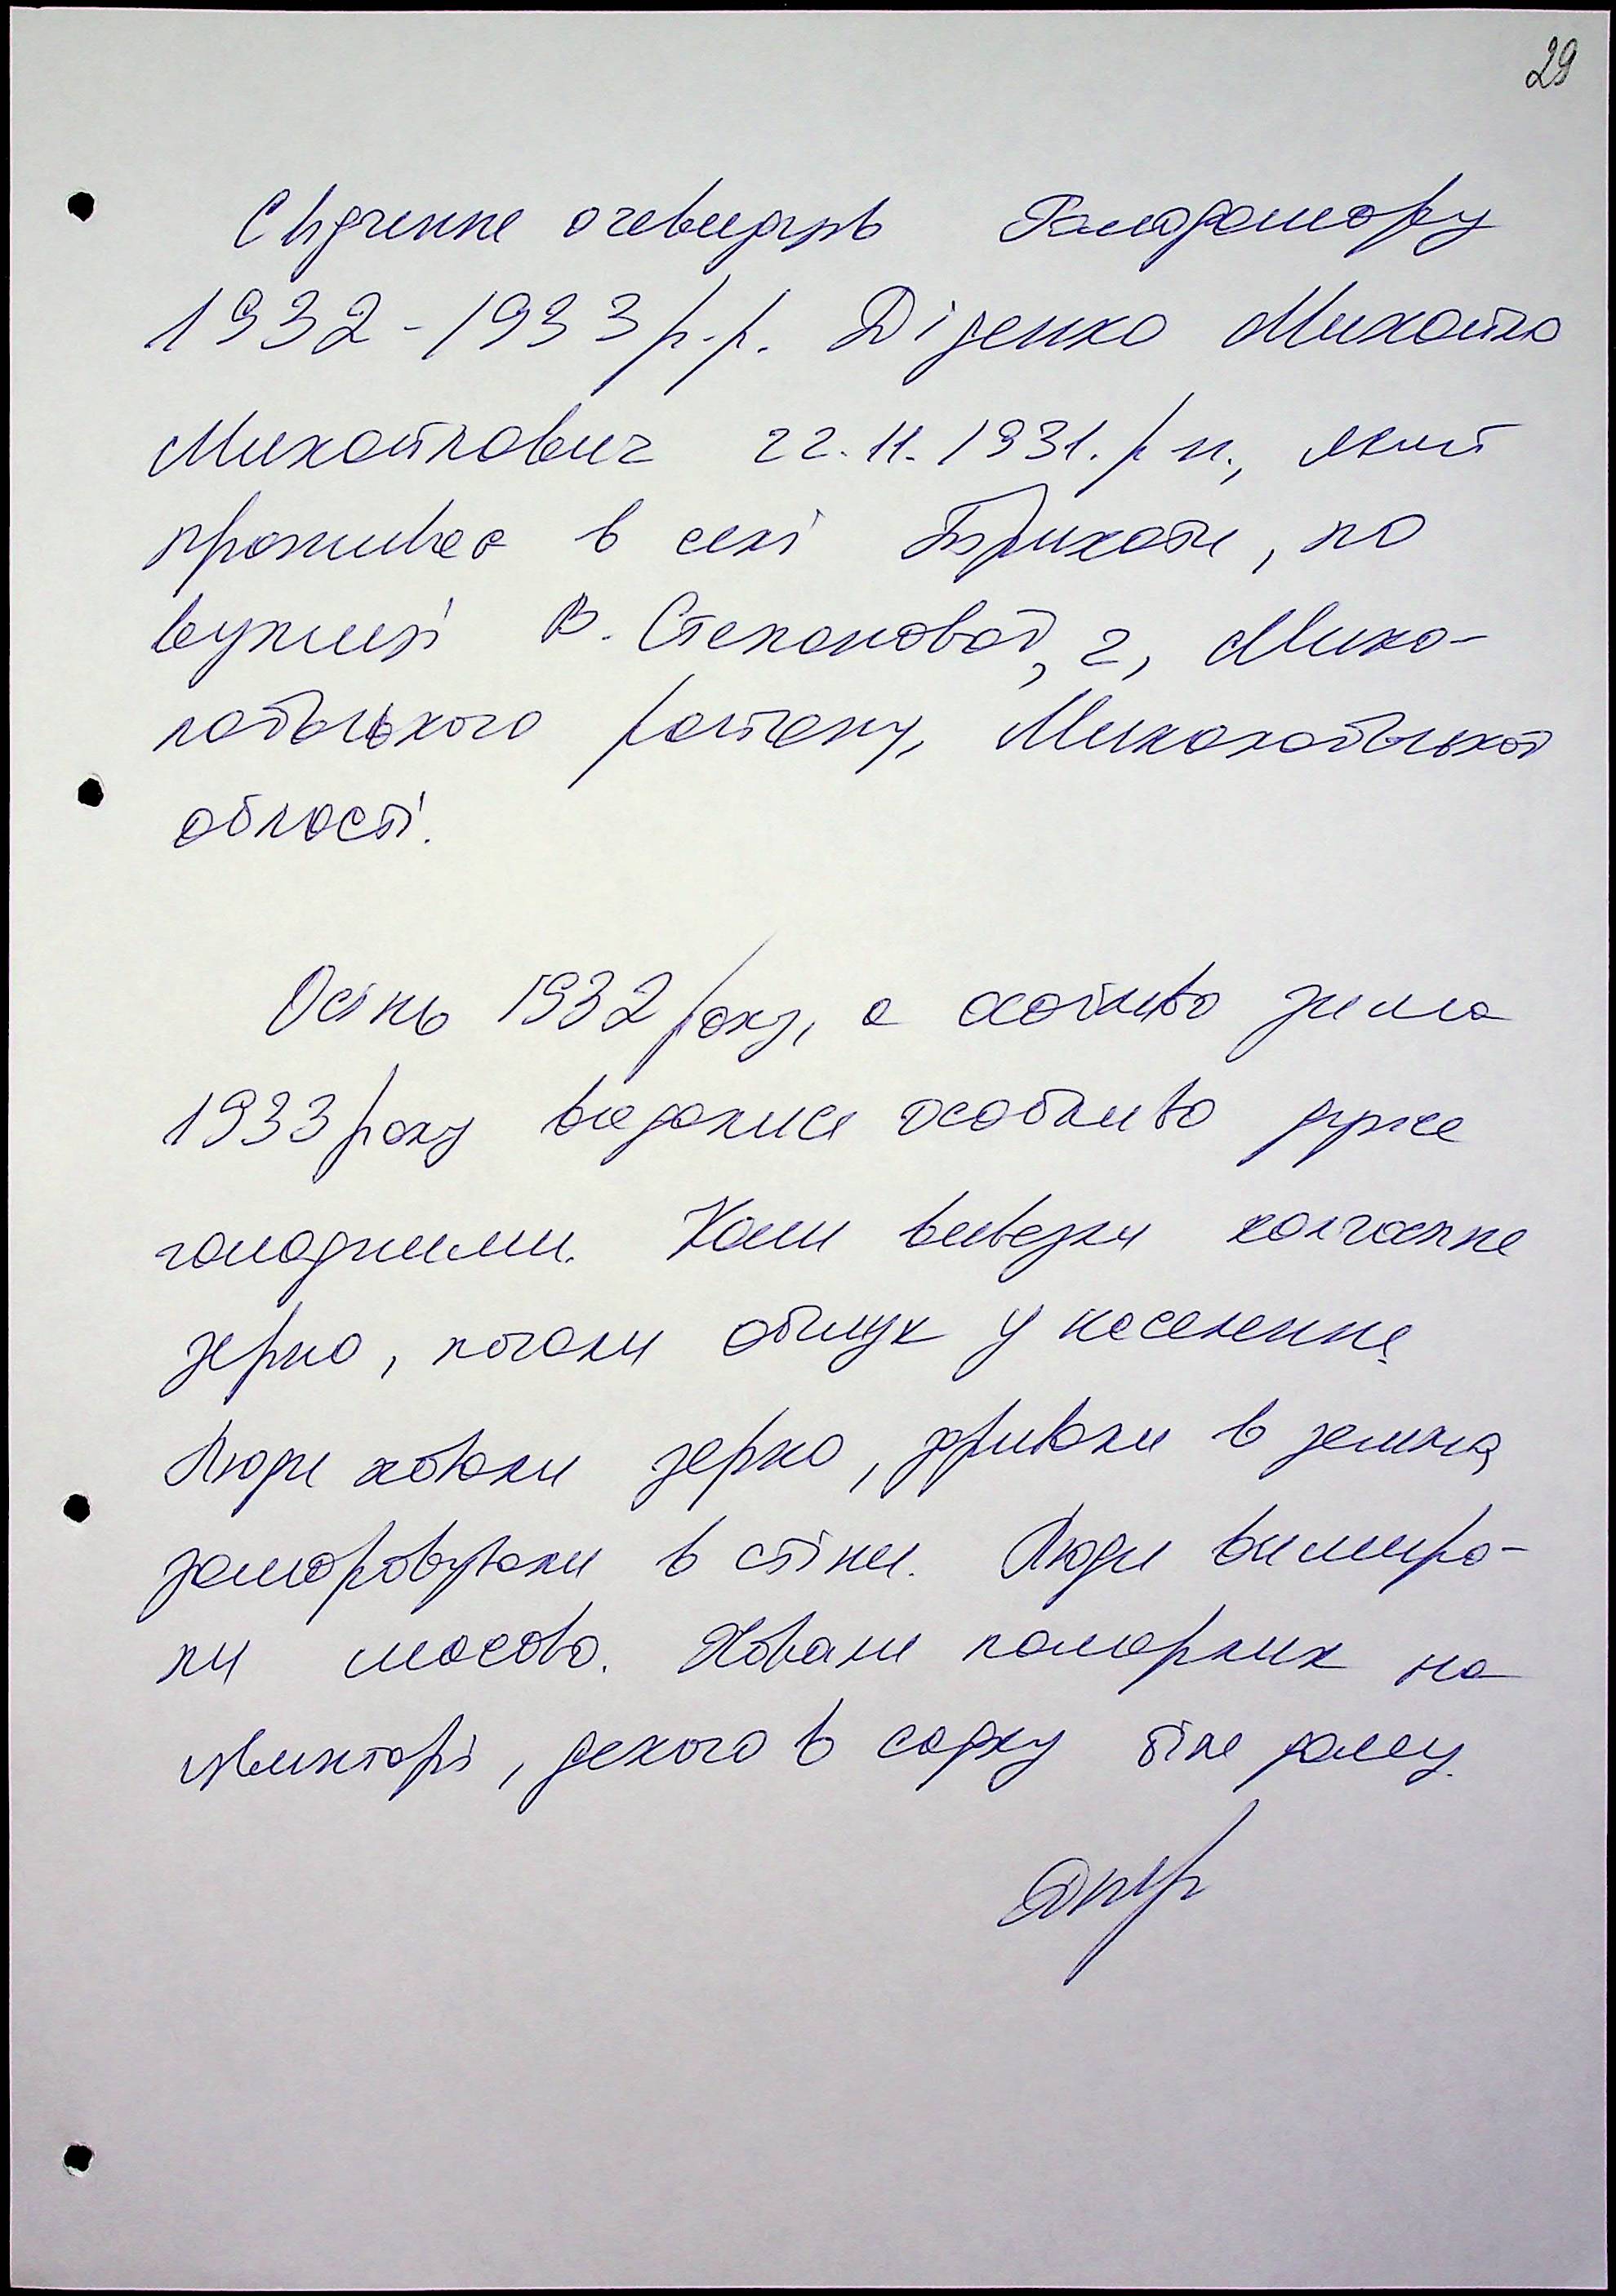 29
Свідчення очевидців Голодомору
1932-1933 р.р. Діденко Михайло
Михайлович 22.11.1931. р н., який
проживає в селі Трихати, по
вулиці В. Степанової, 2, Мико-
лаївського району, Миколаївської
області.
Осінь 1932 року, а особливо зима
1933 року видалися особливо дуже
голодними. Коли вивезли колгоспне
зерно, почали обшук у населення
Люди ховали зерно, зривали в землю,
замуровували в стіни. Люди вимира-
ли масово. Ховали померлих на
цвинтарі, декого в садку біля дому.